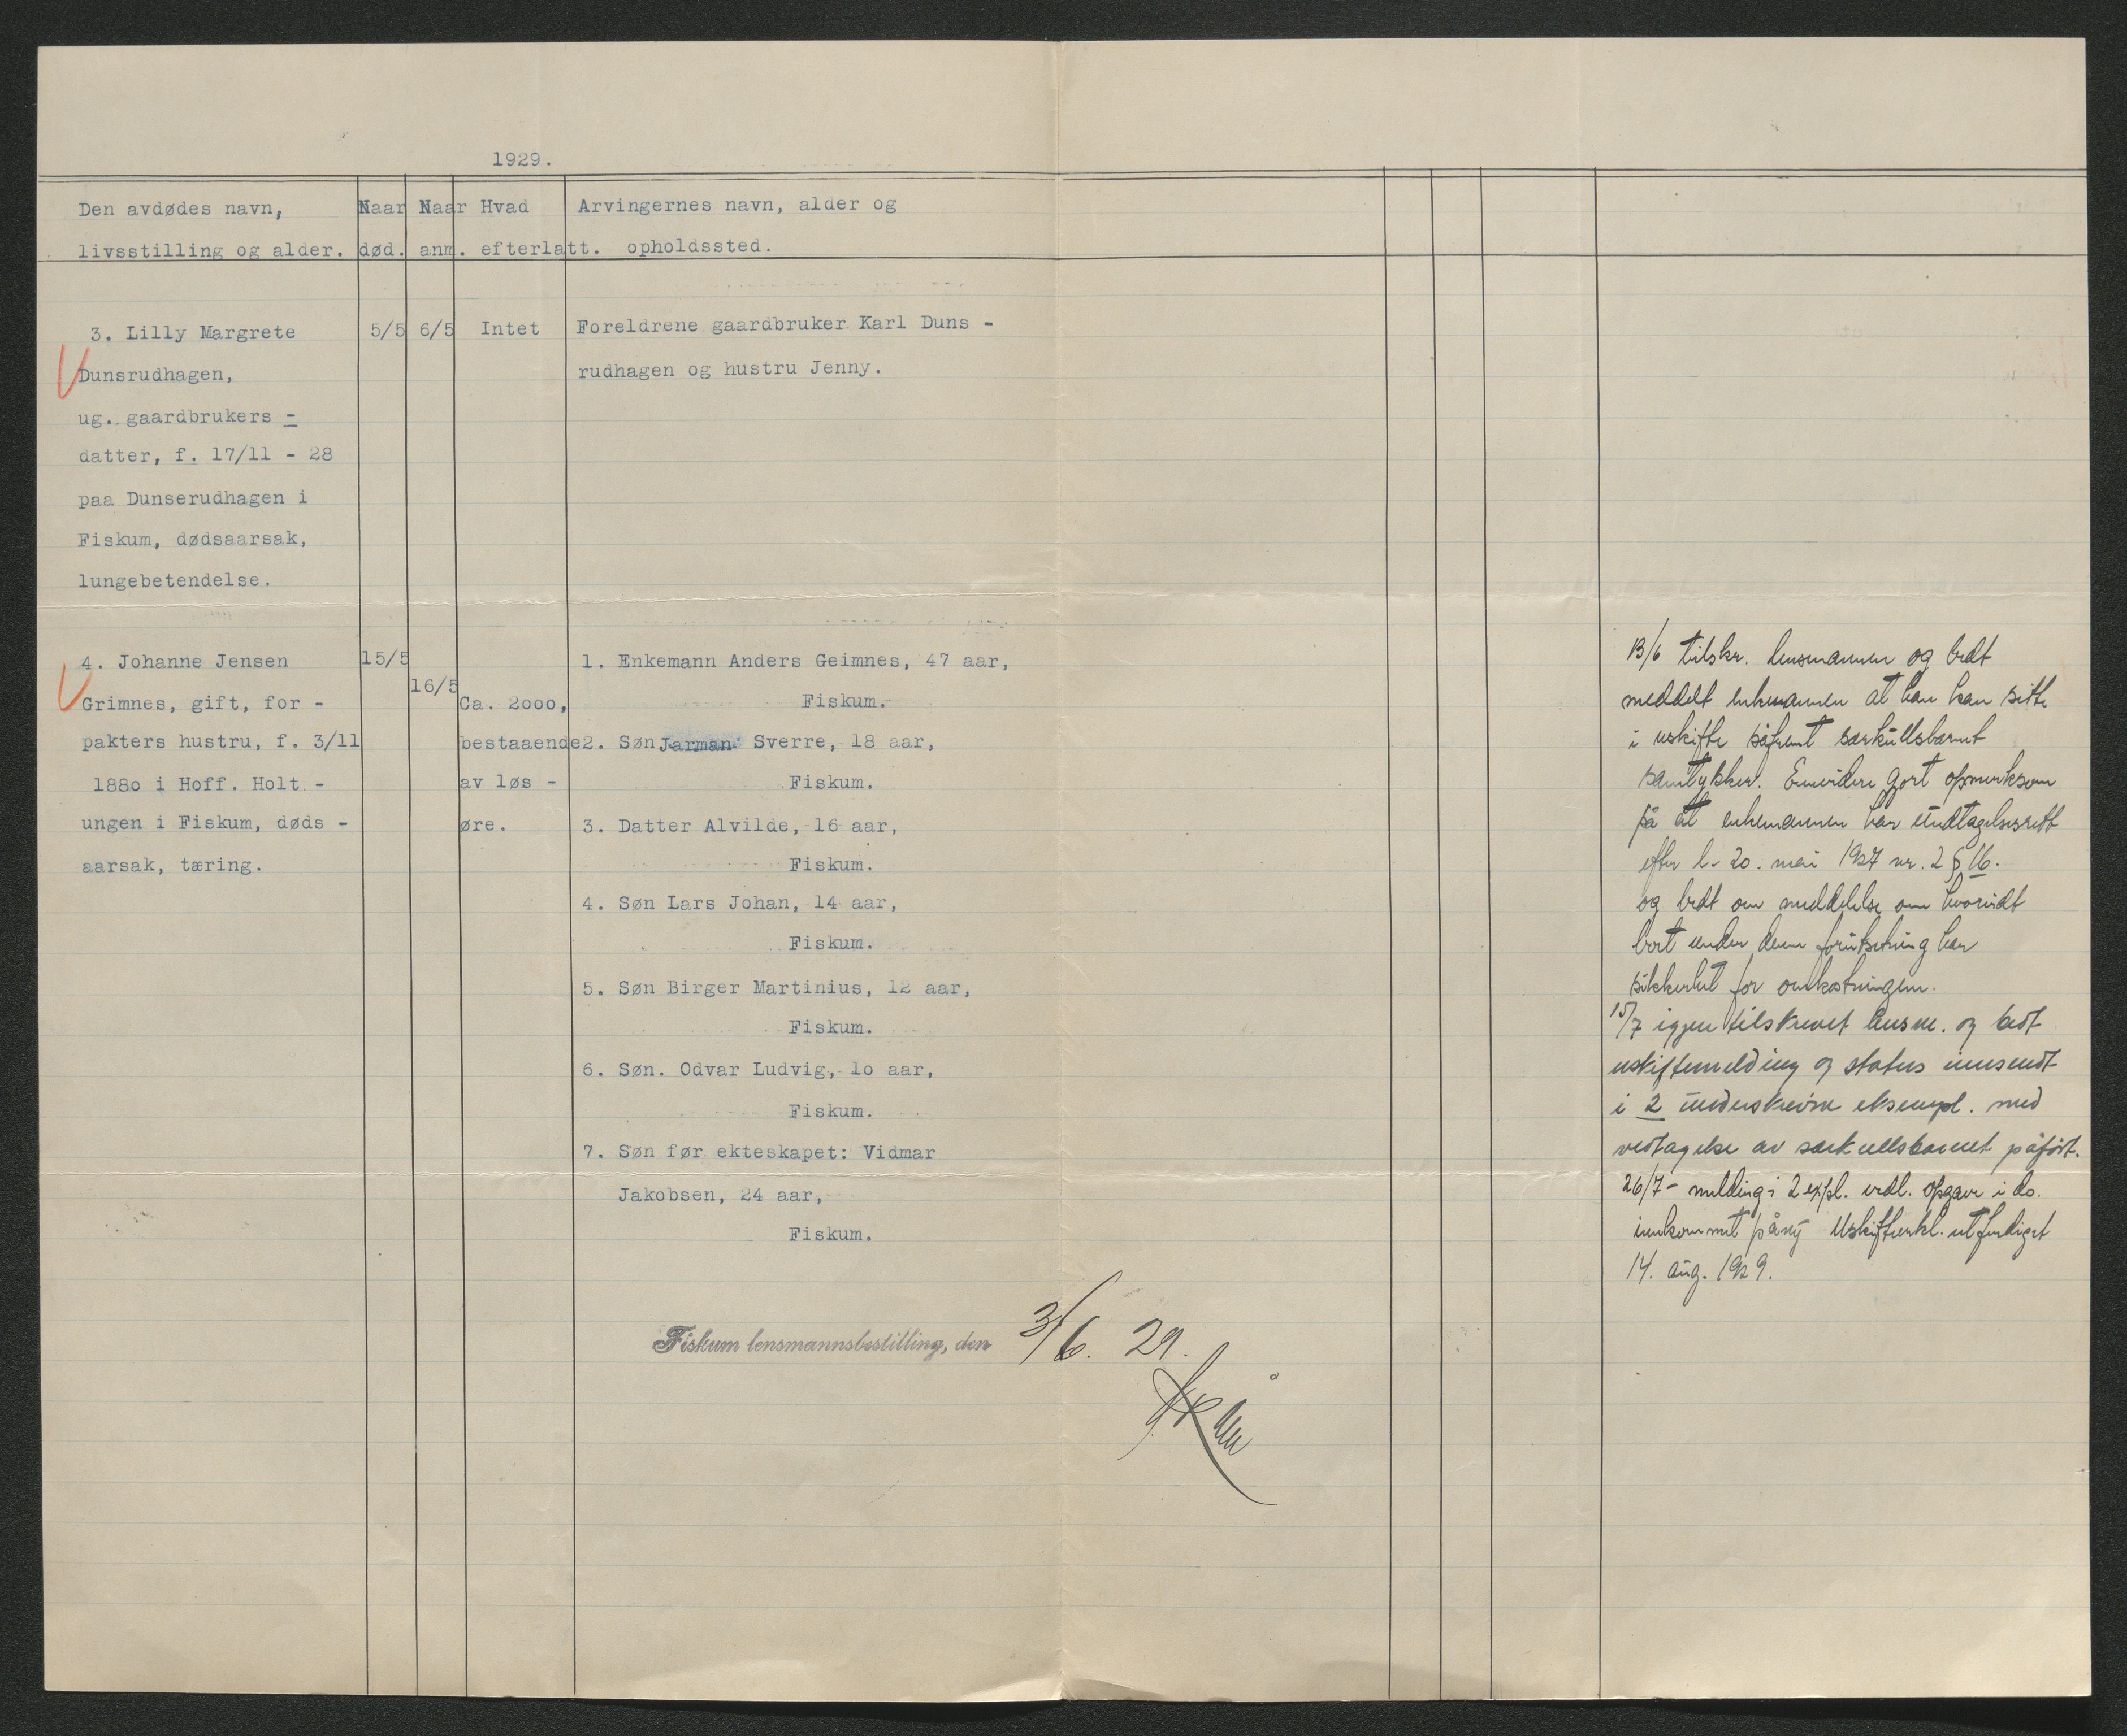 1929.
Den avdødes navn, Naar Naar Hvad Arvingernes navn, alder og
livsstilling og alder. død. anm. efterlatt. opholdssted.
3. Lilly Margrete 5/5 6/5 Intet Foreldrene gaardbruker Karl Duns -
Dunsrudhagen, rudhagen og hustru Jenny.
ug. gaardbrukers -
datter, f. 17/11 - 28
paa Dunserudhagen i
Fiskum, dødsaarsak,
lungebetendelse.
4. Johanne Jensen 15/5 1. Enkemann Anders Geimnes, 47 aar,
16/5
Grimnes, gift, for - Ca. 2ooo, Fiskum.
pakters hustru, f. 3/11 bestaaende 2. Søn Jarman Sverre, 18 aar,
188o i Hoff. Holt - av løs - Fiskum.
ungen i Fiskum, døds - øre. 3. Datter Alvilde, 16 aar,
aarsak, tæring. Fiskum.
4. Søn Lars Johan, 14 aar,
Fiskum.
5. Søn Birger Martinius, 12 aar,
Fiskum.
6. Søn. Odvar Ludvig, 1o aar,
Fiskum.
7. Søn før ekteskapet: Vidmar
Jakobsen, 24 aar,
Fiskum.
Fiskum lensmannsbestilling, den 3/6. 29.
13/6 tilskr. lensmannen og bedt
meddelt enkemannen at han kan sitte
i uskifte såfremt særkullsbarnet
samtykker. Envidere gjort opmerksom
på at enkemannen har undtagelsesrett
efter l. 20. mai 1927 nr. 2 § 16.
og bedt om meddelelse om hvorvidt
bort under denne forutsetning har
sikkerhet for omkostningene.
15/7 igjen tilskrevet lensm. og bedt
uskiftemelding og status innsendt
i 2 underskrevne eksempl. med
vedtagelse av særkullsbarnet påført.
26/7 - melding i 2 expl. vedl. opgave i do.
innkommet påny Uskifteerkl. utferdiget
14. aug. 1929.